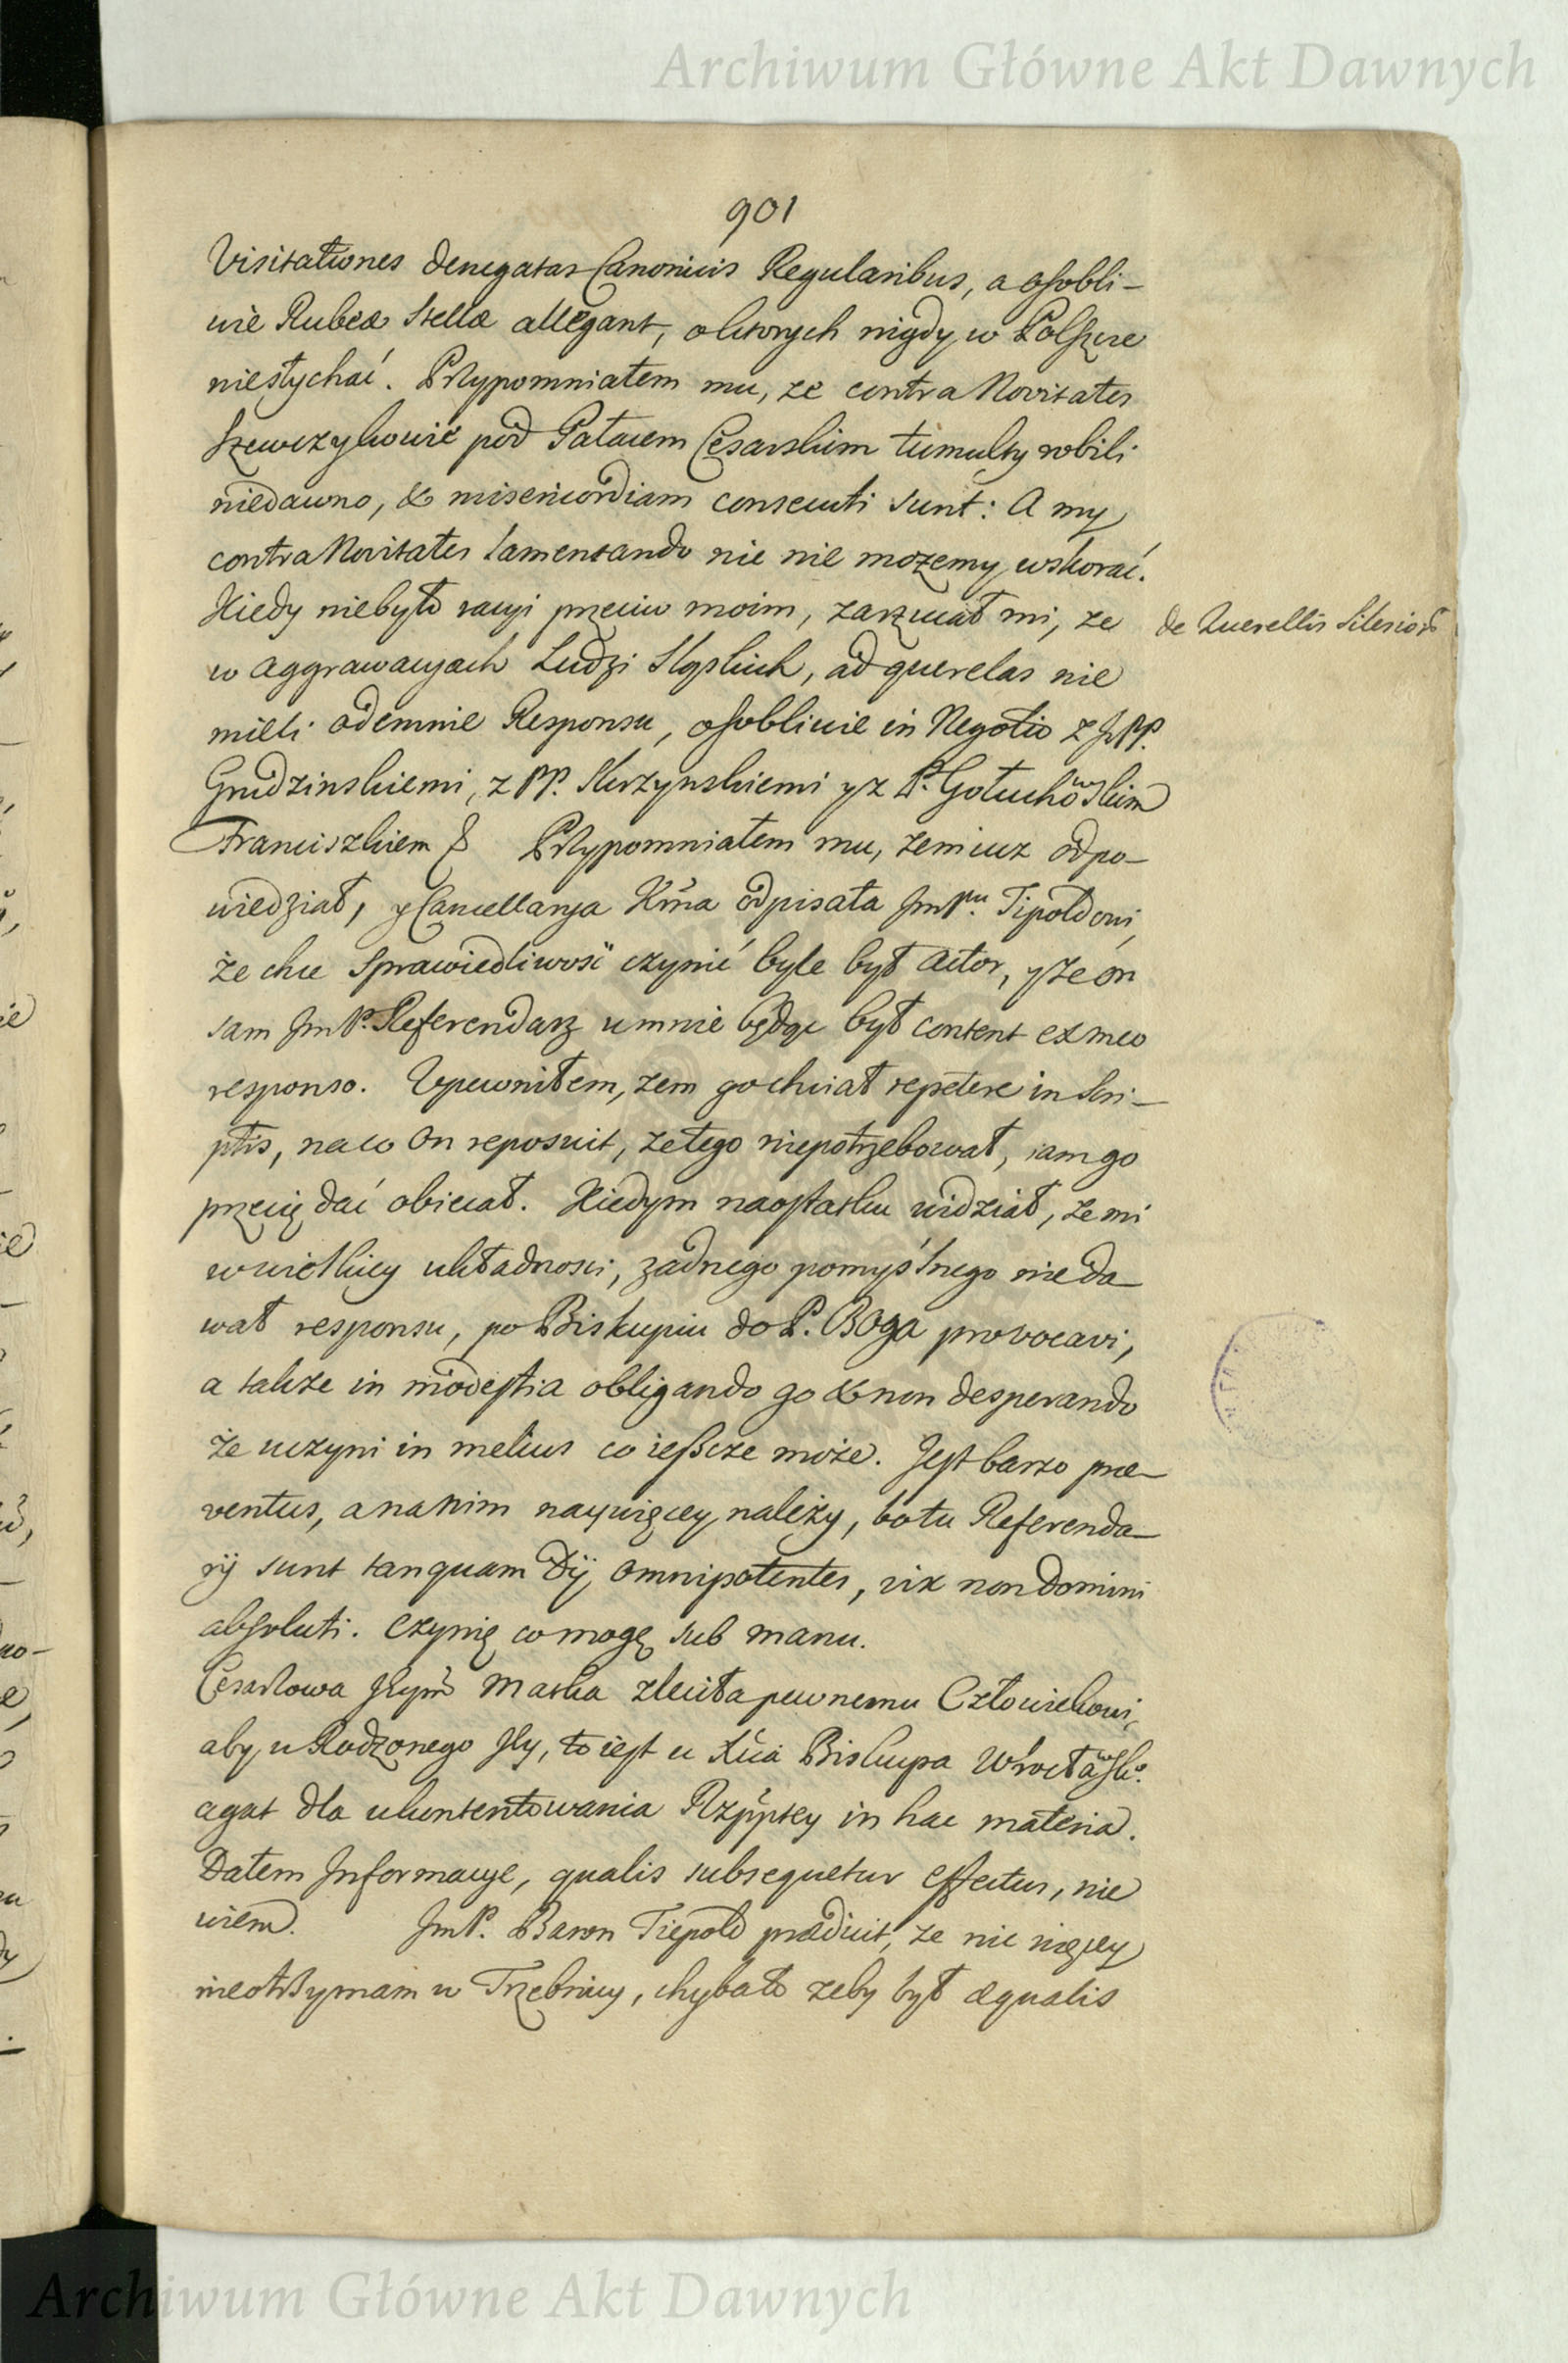 Archiwum Główne Akt Dawnych
901
Visitationes denegatas Canonicis Regularibus, a osobli-
wie Rubeæ Stellæ allegant, o ktorych nigdy w Polszcze
niesłychać. Przypomniałem mu, ze contra Novitates
Szewczykowie pod Pałacem Cesarskim tumulty robili
niedawno, & misericordiam consecuti sunt: A my
contra Novitates lamentando nic nie mozemy wskorać.
Kiedy niebyło racyi przeciw moim, zarzucał mi, ze
de Querellis Silesior̃
w aggrawacyach Ludzi Sląskich, ad querelas nie
mieli odemnie Responsu, osobliwie in Negotio z JPP.
Grudzinskiemi, z PP. Skrzynskiemi y z P. Gołuchowskim
Franciszkiem & Przypomniałem mu, zem iuz odpo-
wiedział, y Cancellarya Krn̄a odpisała JmPu. Tipoldowi,
że chce Sprawiedliwość czynić byle był Actor, y że on
sam JmP. Referendarz u mnie będąc był content ex meo
responso. Upewniłem, zem go chciał repetere in scri-
ptis, na co On reposuit, ze tego niepotrzebował, iam go
przecię dać obiecał. Kiedym naostatku widział, ze mi
w wielkiey układnosci, zadnego pomyślnego nie da-
wał responsu, po Biskupiu do P. Boga provocavi,
a takze in modestia obligando go & non desperando
że uczyni in melius co ieszcze może. Jest barzo præ-
ventus, a na nim naywięcey należy, bo tu Referenda-
rij sunt tanquam Dij omnipotentes, vix non Domini
absoluti. Czynię co mogę sub manu.
Cesarzowa Jeym̃ Matka zleciła pewnemu Człowiekowi,
aby u Rodzonego Jey, to iest u Xcia Biskupa Wrocławsko.
agat dla ukontentowania Rzpptey in hac materia.
Dałem Jnformacye, qualis subsequetur effectus, nie
wiem. JmP. Baron Tiepold prædicit, ze nic więcey
nieotrzymam w Trzebnicy, chybato zeby był æqualis
Archiwum Główne Akt Dawnych